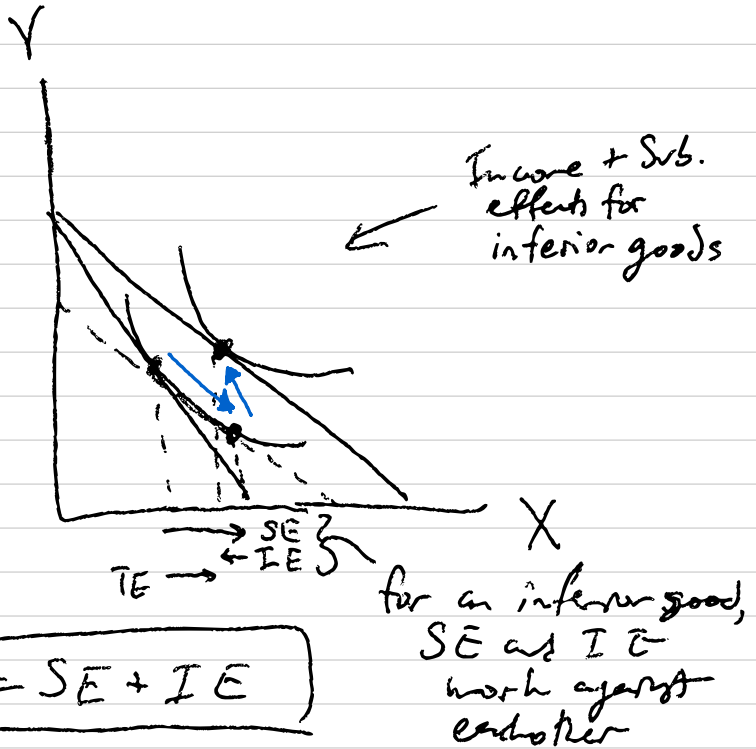 Y
Income + Sub.
effects for
inferior goods
X
SE
IE
TE
for an inferior good,
SE and IE
work against
eachother
= SE + IE